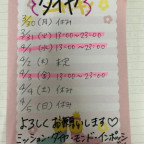 ダイヤ
3/30(月) 休み
3/31(火) 13:00~23:00
4/1(水) 13:00~23:00
4/2(木) 未定
4/3(金) 13:00~23:00
4/4(土) 休み
4/5(日) 休み
よろしくお願いします♡
ミッション・ダイヤ・モンド・インポッシ